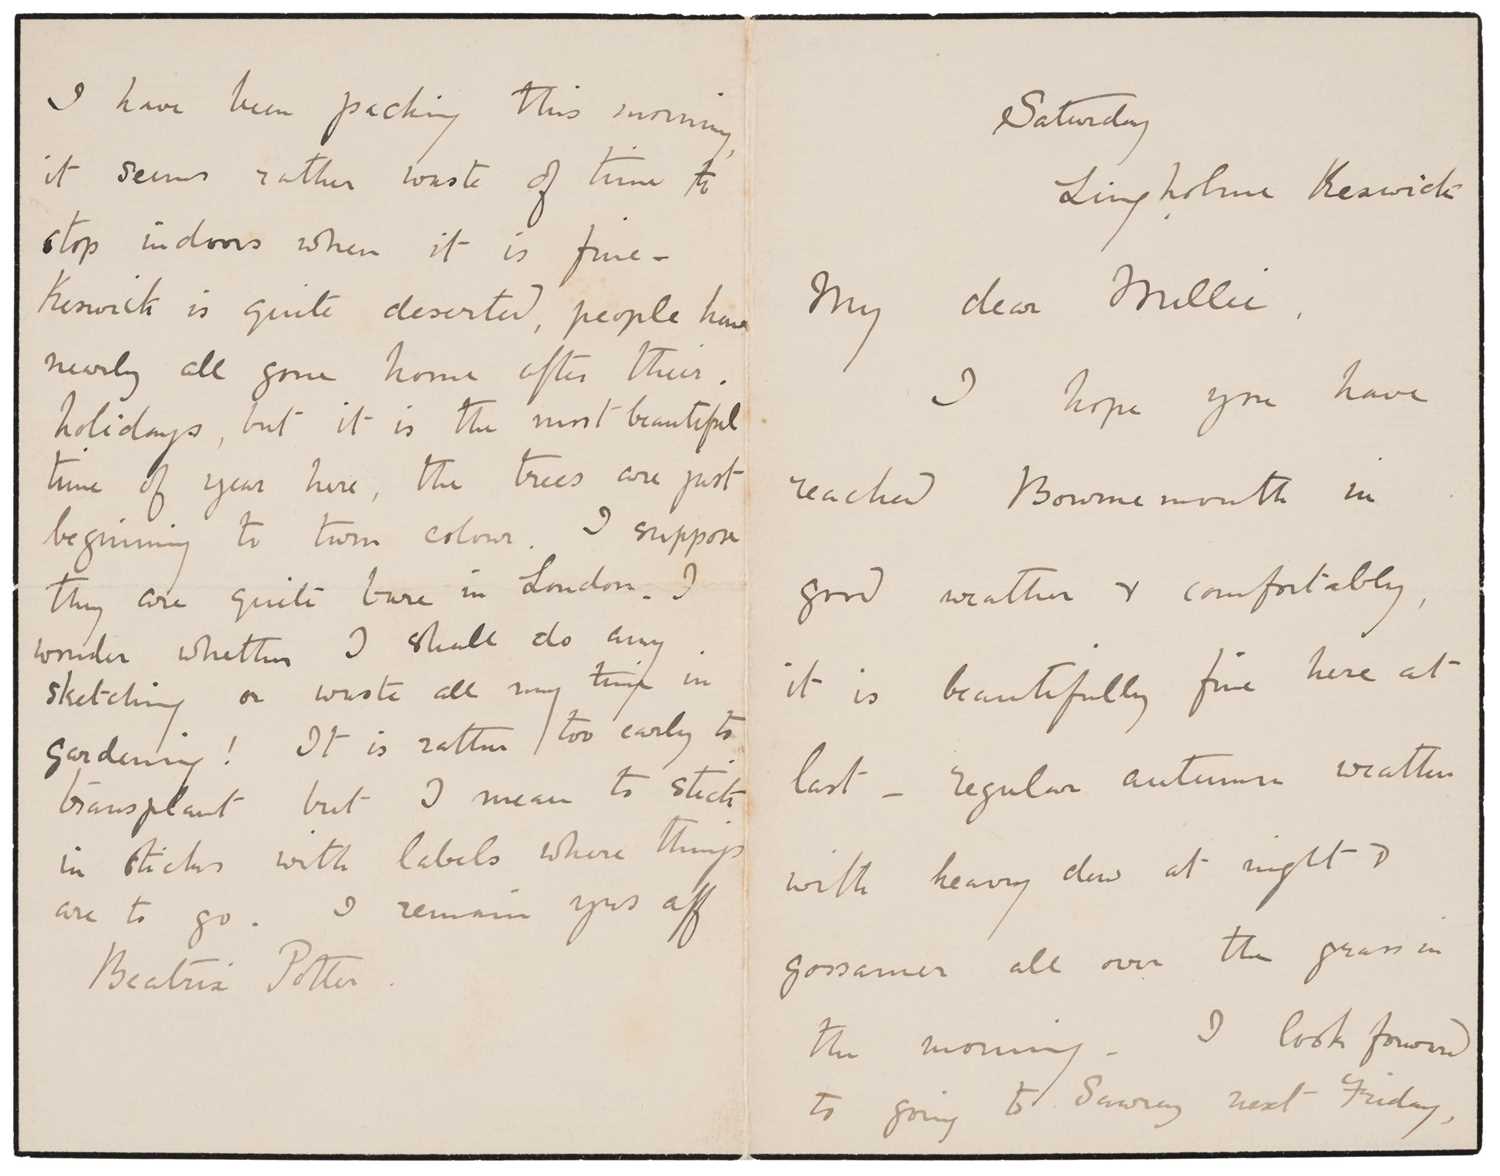 Saturday
Lingholme Keswick
My dear Millie,
I hope you have
reached Bournemouth in
good weather & comfortably,
it is beautifully fine here at
last - regular autumn weather
with heavy dew at night &
gossamer all over the grass in
the morning - I look forward
to going to Sawrey next Friday,
I have been packing this morning,
it seems rather waste of time to
stop indoors when it is fine -
Keswick is quite deserted, people have
nearly all gone home after their.
holidays, but it is the most beautiful
time of year here, the trees are just
beginning to turn colour. I suppose
they are quite bare in London. I
wonder whether I shall do any
sketching or waste all my time in
gardening! It is rather too early to
transplant but I mean to stick
in sticks with labels where things
are to go. I remain yrs aff
Beatrix Potter.